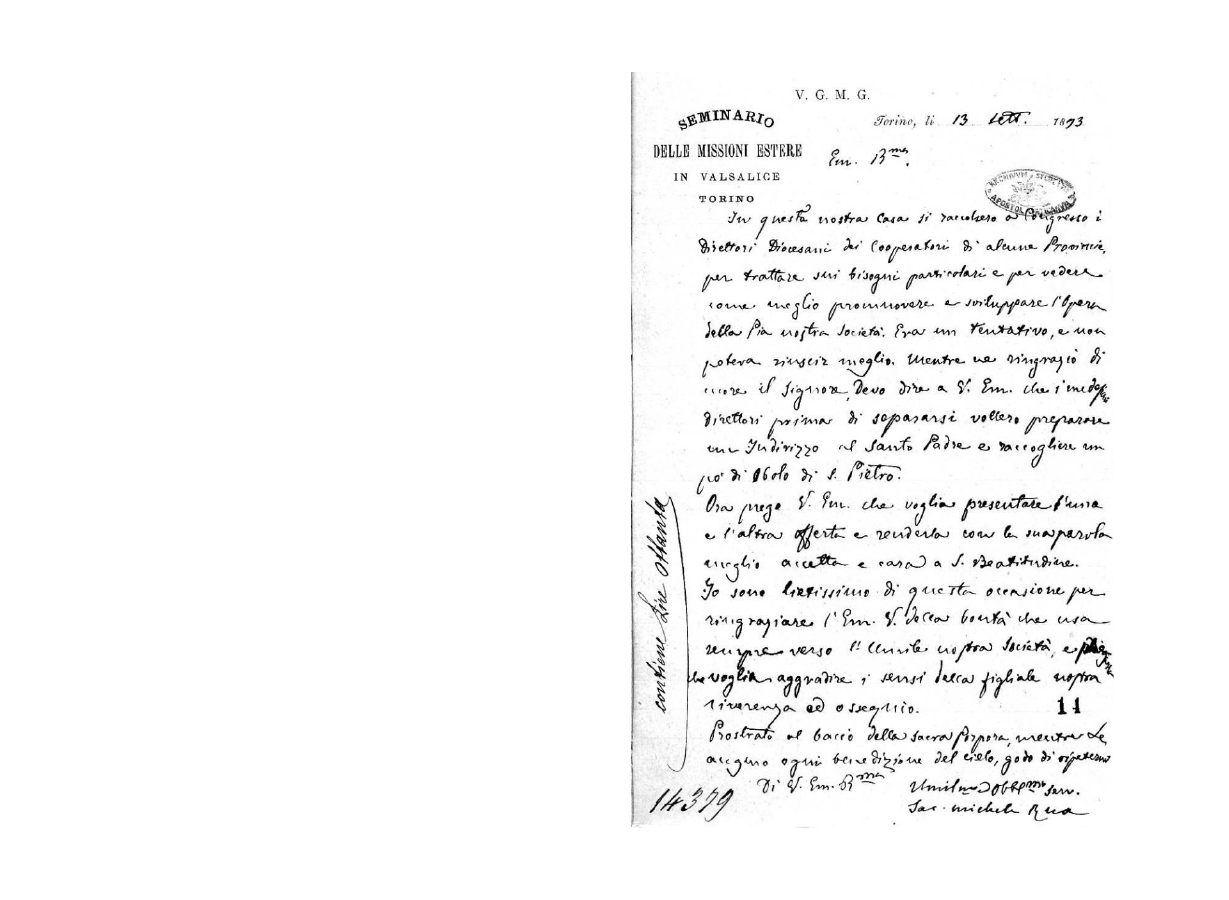 V. G. M. G.
SEMINARIO
DELLE MISSIONI ESTERE
IN VALSALICE
TORINO
Torino, li 13 Sett. 1893
Em. R.ma
In questa nostra Casa si raccolsero a Congresso i
Direttori Diocesani dei Cooperatori di alcune Provincie,
per trattare sui bisogni particolari e per vedere
come meglio promuovere e sviluppare l'Opera
della Pia nostra Società. Era un tentativo, e non
poteva riuscir meglio. Mentre ne ringrazio di
cuore il Signore, Devo dire a V. Em. che i
direttori prima di separarsi vollero preparare
un Indirizzo al Santo Padre e raccogliere un
po' di Obolo di S. Pietro.
Ora prego V. Em. che voglia presentare l'una
e l'altra offerta e renderla con la sua parola
meglio accetta e cara a S. Beatitudine.
Io sono lietissimo di questa occasione per
ringraziare l'Em. V. della bontà che usa
sempre verso l'umile nostra Società, e
che voglia aggradire i sensi della figliale nostra
riverenza ed ossequio.
Prostrato al bacio della sacra Porpora, mentre Le
auguro ogni benedizione del cielo, godo di ripetermi
Di V. Em. R.ma
Umil.mo Obbl.mo serv.
Sac. Michele Rua
contiene Lire Ottanta
14
14379